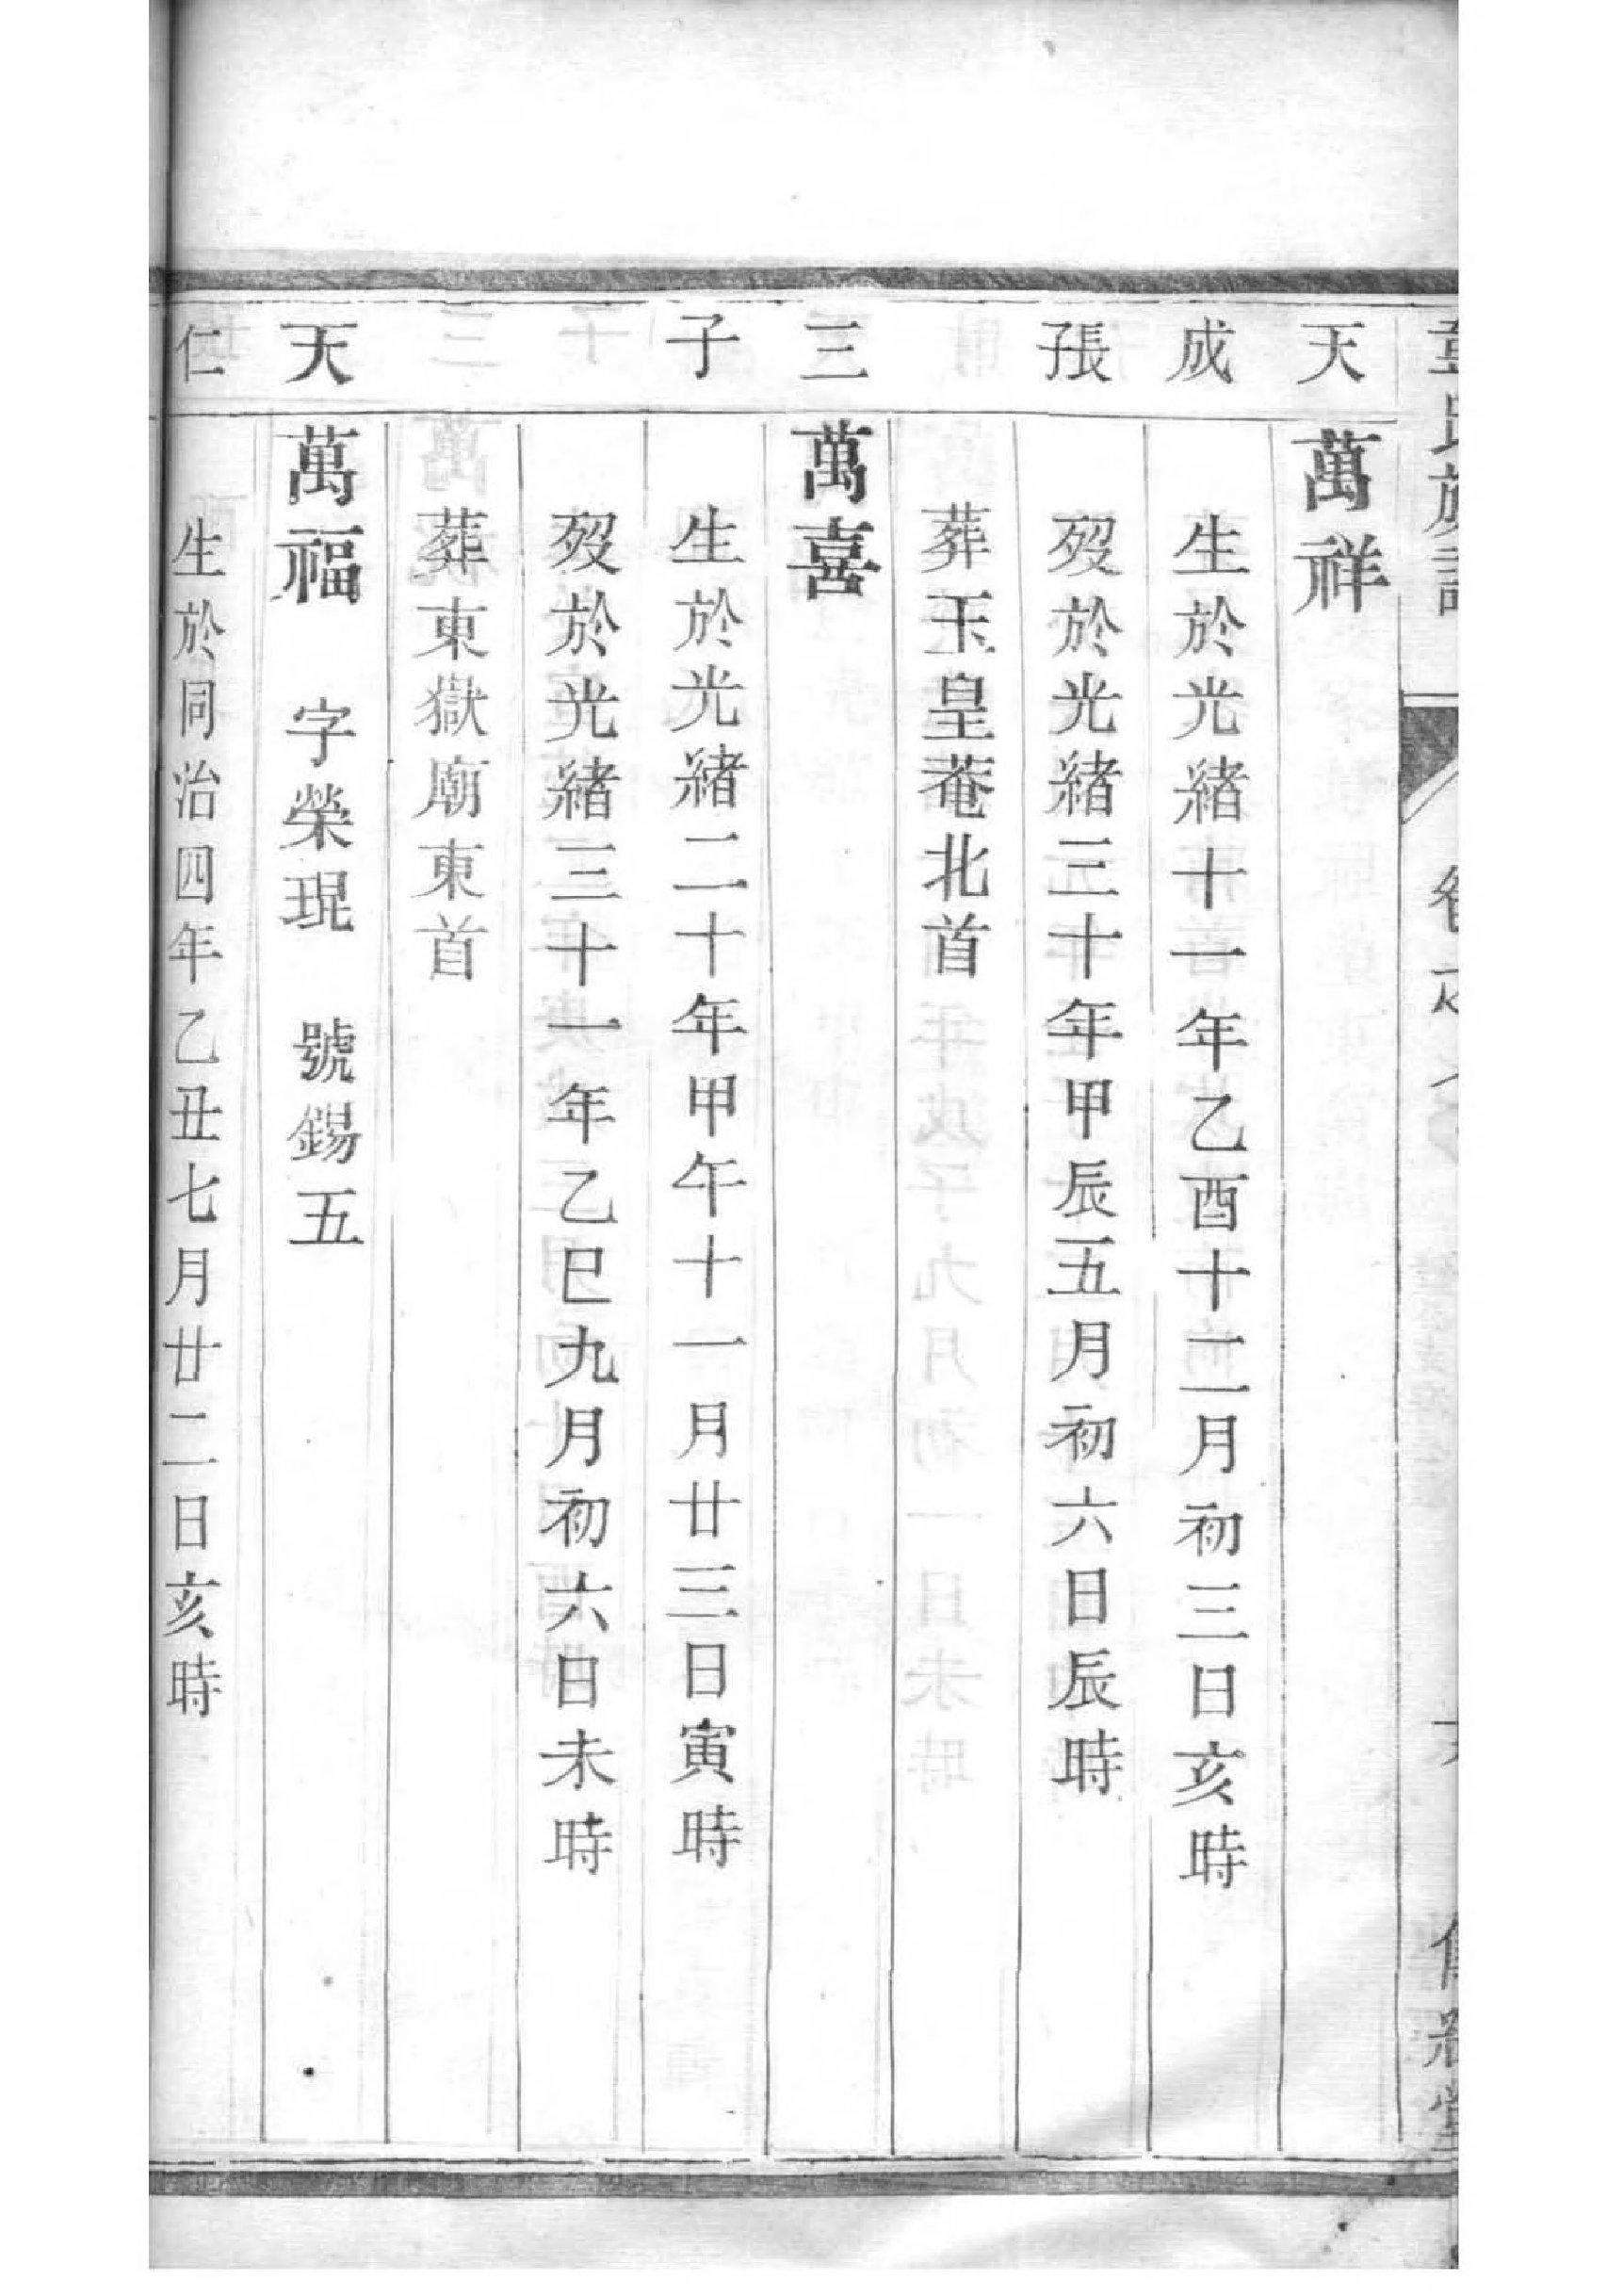 天 萬祥
成 生於光緒十一年乙酉十二月初三日亥時
張 歿於光緒三十年甲辰五月初六日辰時
葬玉皇菴北首
三 萬喜
子 生於光緒二十年甲午十一月廿三日寅時
歿於光緒三十一年乙巳九月初六日未時
葬東獄廟東首
天 萬福 字榮琨 號錫五
仁 生於同治四年乙丑七月廿二日亥時